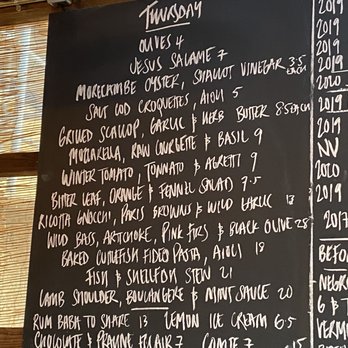 THURSDAY
OLIVES 4
JESUS SALAME 7
MORECAMBE OYSTER, SHALLOT VINEGAR 3.5 EACH
SALT COD CROQUETTES, AIOLI 5
GRILLED SCALLOP, GARLIC & HERB BUTTER 8.5 EACH
MOZZARELLA, RAW COURGETTE & BASIL 9
WINTER TOMATO, TONNATO & AGRETTI 9
BITTER LEAF, ORANGE & FENNEL SALAD 7.5
RICOTTA GNOCCHI, PARIS BROWNS & WILD GARLIC 13
WILD BASS, ARTICHOKE, PINK FIRS & BLACK OLIVE 28
BAKED CUTTLEFISH FIDEO PASTA, AIOLI 18
FISH & SHELLFISH STEW 21
LAMB SHOULDER, BOULANGERE & MINT SAUCE 20
RUM BABA TO SHARE 13 LEMON ICE CREAM 6.5
CHOCOLATE & PRAUNE ECLAIR 7 COMTE 7
2019
2019
2019
2019
2020
2019
2019
NV
2020
2019
2017
BEFO
NEGR
6
VERM